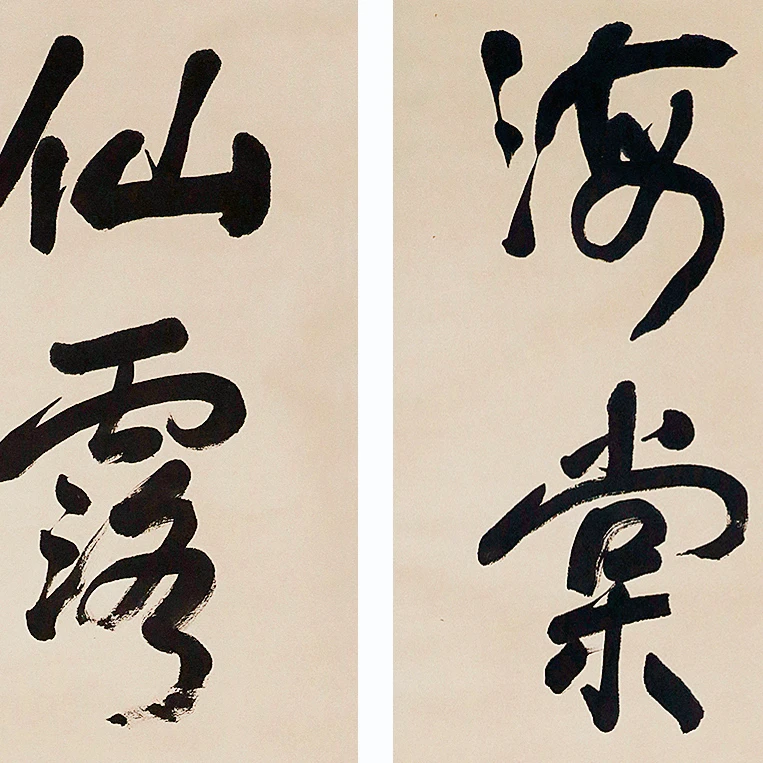 海棠
仙露